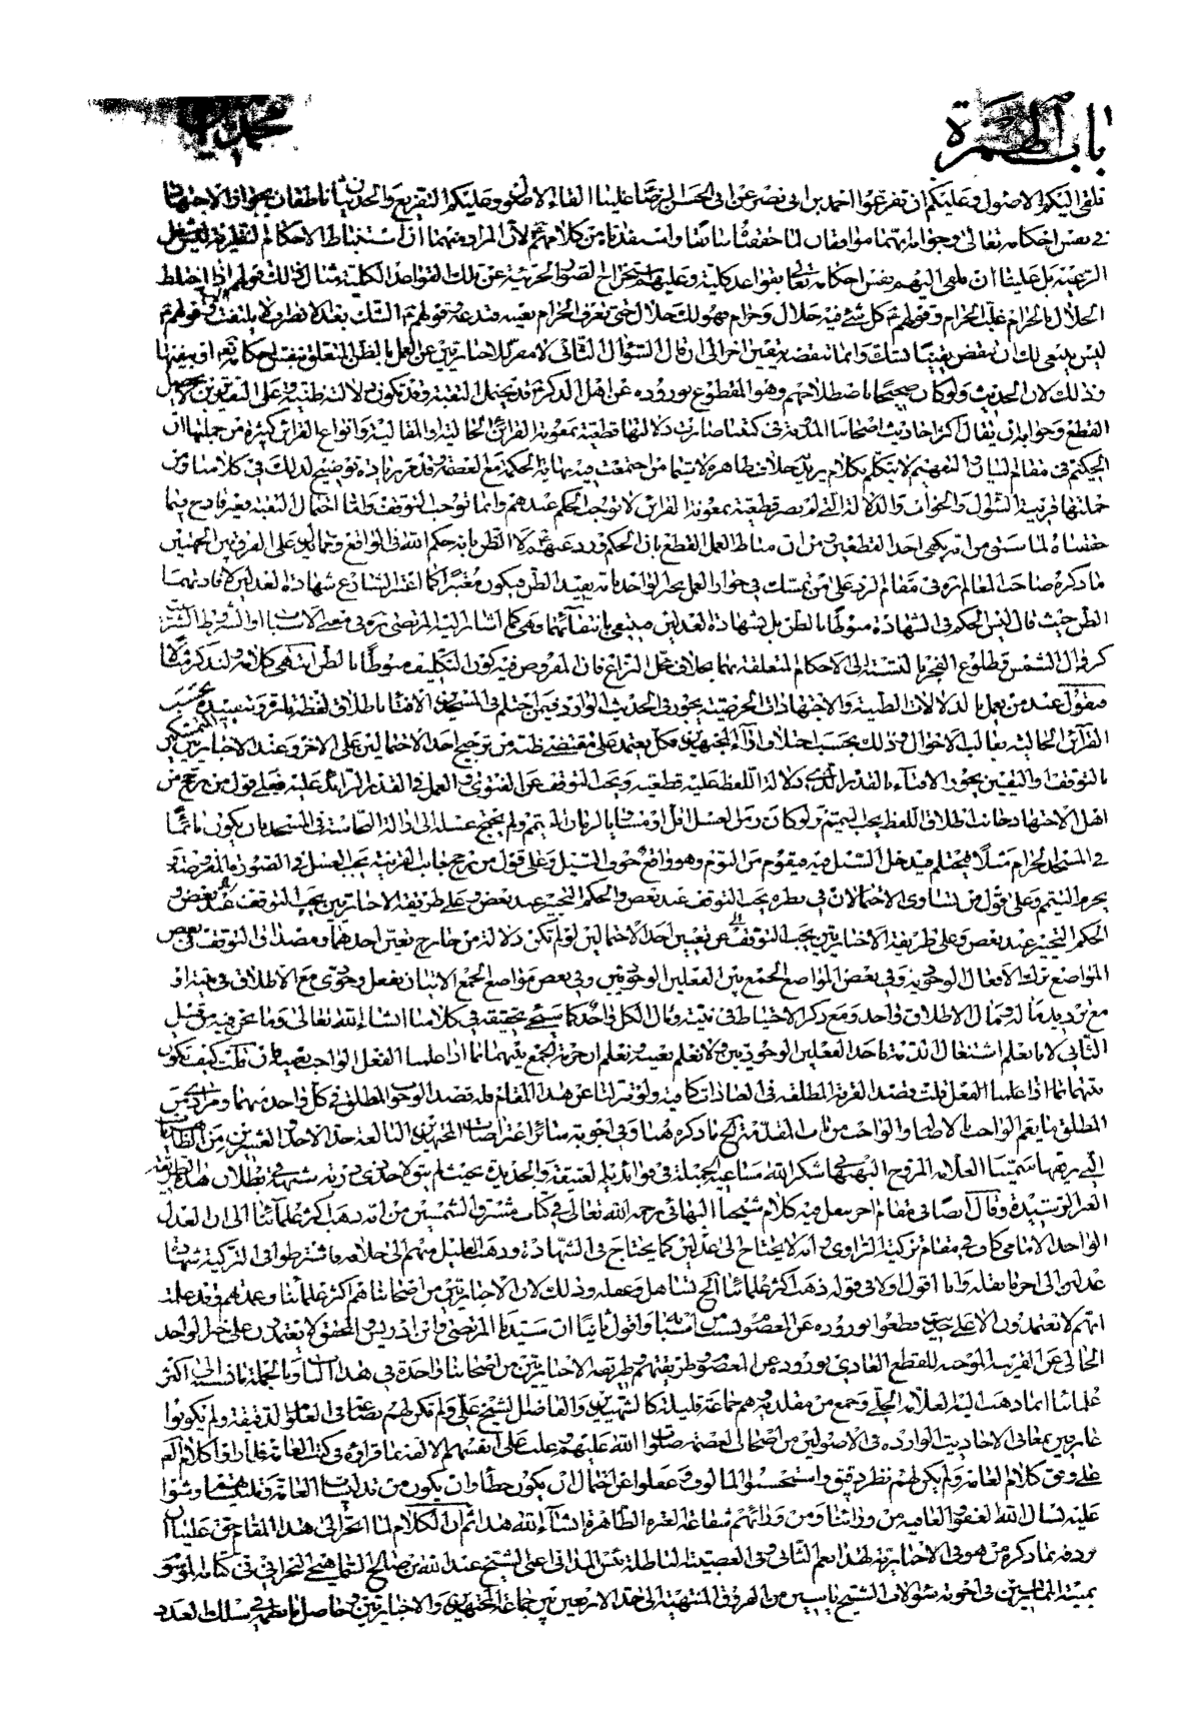 باب الهمزة
محمد
نلقي اليكم الاصول وعليكم ان تفرعوا احمد بن ابي نصر عن ابي الحسن الرضا علينا القاء الاصول وعليكم التفريع والحديثان ناطقان بجواز الاجتهاد
في نفس احكامه تعالى وجوابه انهما موافقان لما حققناه سابقا واستفدناه من كلامهم لان المراد منهما ان استنباط الاحكام النظرية ليس شغل
الرعية بل علينا ان نلقي اليهم نفس احكامه تعالى بقواعد كلية وعليهم استخراج الصور الجزئية عن تلك القواعد الكلية مثال ذلك قولهم اذا اختلط
الحلال بالحرام غلب الحرام وقولهم كل شئ فيه حلال وحرام فهو لك حلال حتى تعرف الحرام بعينه فتدعه وقولهم الشك بعد الانصراف لا يلتفت اليه وقولهم
ليس ينبغي لك ان تنقض يقينا بشك وانما تنقضه بيقين اخر الى ان قال السؤال الثاني لا مفر للاخباريين عن العمل بالظن المتعلق بنفس احكامه تعالى او بنفيها
وذلك لان الحديث ولو كان صحيحا باصطلاحهم وهو المقطوع بوروده عن اهل الذكر قد يحتمل التقية وقد تكون دلالته ظنية وعلى التقديرين لا يحصل
القطع وجوابه ان يقال اكثر احاديث اصحابنا المدونة في كتبنا صارت دلالتها قطعية بمعونة القرائن الحالية والمقالية وانواع القرائن كثيرة من جملتها ان
الحكيم في مقام البيان والتفهيم لا يتكلم بكلام يريد خلاف ظاهره لا سيما من اجتمعت فيه نهاية الحكمة مع العصمة وقد مر زيادة توضيح لذلك في كلامنا ومن
جملتها قرينة السؤال والجواب والدلالة التي لم تصر قطعية بمعونة القرائن لا توجب الحكم عندهم وانما توجب التوقف واما احتمال التقية فغير قادح فيما
حققناه لما سبق من انه يكفي احد القطعين ومن ان مناط العمل القطع بان الحكم ورد عنهم لا الظن بانه حكم الله في الواقع ومما يدل على الفرق بين الجهتين
ما ذكره صاحب المعالم ره في مقام الرد على من تمسك في جواز العمل بخبر الواحد بانه يفيد الظن فيكون معتبرا كما اعتبر الشارع شهادة العدلين لافادتهما
الظن حيث قال ليس الحكم في الشهادة منوطا بالظن بل بشهادة العدلين فينتفي بانتفائها وهي كما اشار اليه المرتضى ره في معنى الاسباب او الشروط الشرعية
كزوال الشمس وطلوع الفجر بالنسبة الى الاحكام المتعلقة بهما بخلاف محل النزاع فان المفروض فيه كون التكليف منوطا بالظن انتهى كلامه
فنقول عند من يعمل بالدلالات الظنية والاجتهادات يجوز في الحديث الوارد فيمن احتلم في المسجدين الافتاء باطلاق لفظه تارة وتقييده بحسب
القرائن الحالية بغالب الاحوال وذلك بحسب اختلاف آراء المجتهدين فكل يعتمد على مقتضى ظنه من ترجيح احد الاحتمالين على الاخر وعند الاخباريين المتمسكين
بالتوقف واليقين يجوز الافتاء بالقدر الذي دلالة اللفظ عليه قطعية ويجب التوقف عن الفتوى والعمل في القدر الزائد عليه فعلى قول من يرجح من
اهل الاجتهاد جانب اطلاق اللفظ يجب التيمم ولو كان زمن الغسل اقل او مساويا لزمان التيمم ولم يحتج غسله الى ازالة النجاسة في المسجد بان يكون نائما
في المسجد الحرام مثلا فيحتلم فيدخل السيل فيه فيقوم من النوم وهو واقع في جوف السيل وعلى قول من يرجح جانب القرينة يجب الغسل في الصورة المفروضة
يحرم التيمم وعلى قول من تساوى الاحتمالان في نظره يجب التوقف عند بعض والحكم التخيير عند بعض وعلى طريقة الاخباريين يجب التوقف عند بعض و
الحكم التخيير عند بعض وعلى طريقة الاخباريين يجب التوقف عن تعيين احد الاحتمالين لو لم تكن دلالة من خارج تعين احدهما ومصداق التوقف في بعض
المواضع ترك الافعال الوجودية وفي بعض المواضع الجمع بين الفعلين الوجوديين وفي بعض مواضع الجمع الاتيان بفعل وجودي مع الاطلاق في نيته او
مع ترديد ما له ومآل الاطلاق واحد ومع ذكر الاحتياط في نيته ومآل الكل واحد كما سيجئ تحقيقه في كلامنا انشاء الله تعالى وما نحن فيه من قبيل
الثاني لانا نعلم اشتغال الذمة باحد الفعلين الوجوديين ولا نعلم بعينه ونعلم ان حرمة الجمع بينهما انما اذا علمنا الفعل الواجب بعينه فان قلت كيف تكون
نيتهما اذا علمنا الفعل قلت قصد القربة المطلقة في العبادات كافية ولو تنزلنا عن هذا المقام فله قصد الوجوب المطلق في كل واحد منهما ومرادي من
المطلق ما يعم الواجب بالاصالة والواجب من باب المقدمة الخ ما ذكره هنا وفي اجوبة سائر اعتراضات المجتهدين البالغة حد الاحد والعشرين من
التي زيفها سمينا العلامة المروج البهبهاني شكر الله مساعيه الجميلة في فوائديه العتيقة والجديدة بحيث لم يبق لاحد شبهة في بطلان هذه الطريقة
الغير الرشيدة وقال ايضا في مقام اخر بعد نقل فيه كلام شيخنا البهائي رحمه الله تعالى في كتاب مشرق الشمسين من انه ذهب اكثر علمائنا الى ان العدل
الواحد الامامي كاف في مقام تزكية الراوي وانه لا يحتاج الى عدلين كما يحتاج في الشهادة وذهب القليل منهم الى خلافه فاشترطوا في التزكية شهادة
عدلين الى اخر ما نقله وانا اقول اولا في قوله ذهب اكثر علمائنا الخ تساهل وغفلة وذلك لان الاخباريين من اصحابنا هم اكثر علمائنا وعمدتهم وقد علمت
انهم لا يعتمدون الا على حديث قطعوا بوروده عن المعصوم واقول ثانيا ان سيدنا المرتضى وابن ادريس والمحقق لا يعتمدون على خبر الواحد
الخالي عن القرينة الموجبة للقطع العادي بوروده عن المعصوم فطريقتهم وطريقة الاخباريين من اصحابنا واحدة في هذا الباب وبالجملة ما نسبه الى اكثر
علمائنا انما ذهب اليه العلامة الحلي وجمع من مقلديه وهم جماعة قليلة كالشهيدين والفاضل الشيخ علي ولم تكن لهم بضاعة في العلوم الدقيقة ولم يكونوا
عارفين بمعاني الاحاديث الواردة في الاصولين من اصحاب العصمة صلوات الله عليهم وغلبت على انفسهم الالفة بما قرأوه في كتب العامة فلما رأوا كلام العلامة
على وفق كلام العامة ولم يكن لهم نظر دقيق واستحسنوا المألوف وغفلوا عن احتمال ان يكون خطأ وان يكون من تدليسات العامة ومشوا
عليه نسأل الله العفو والعافية من ورائنا ومن ورائهم شفاعة العترة الطاهرة انشاء الله هذا ثم ان الكلام لما انجر الى هذا المقام حق علينا ان
نردفه بما ذكره من هو في الاخبارية لهذا نعم الثاني وفي العصبية الباطلة بئس المذاق اعني الشيخ عبد الله بن صالح السماهيجي البحراني في كتابه الموسوم
بمنية الممارسين في اجوبة سؤالات الشيخ ياسين من الفروق المنتهية الى حد الاربعين بين جماعة المجتهدين والاخباريين وحاصل ما نظمه في سلك العدد